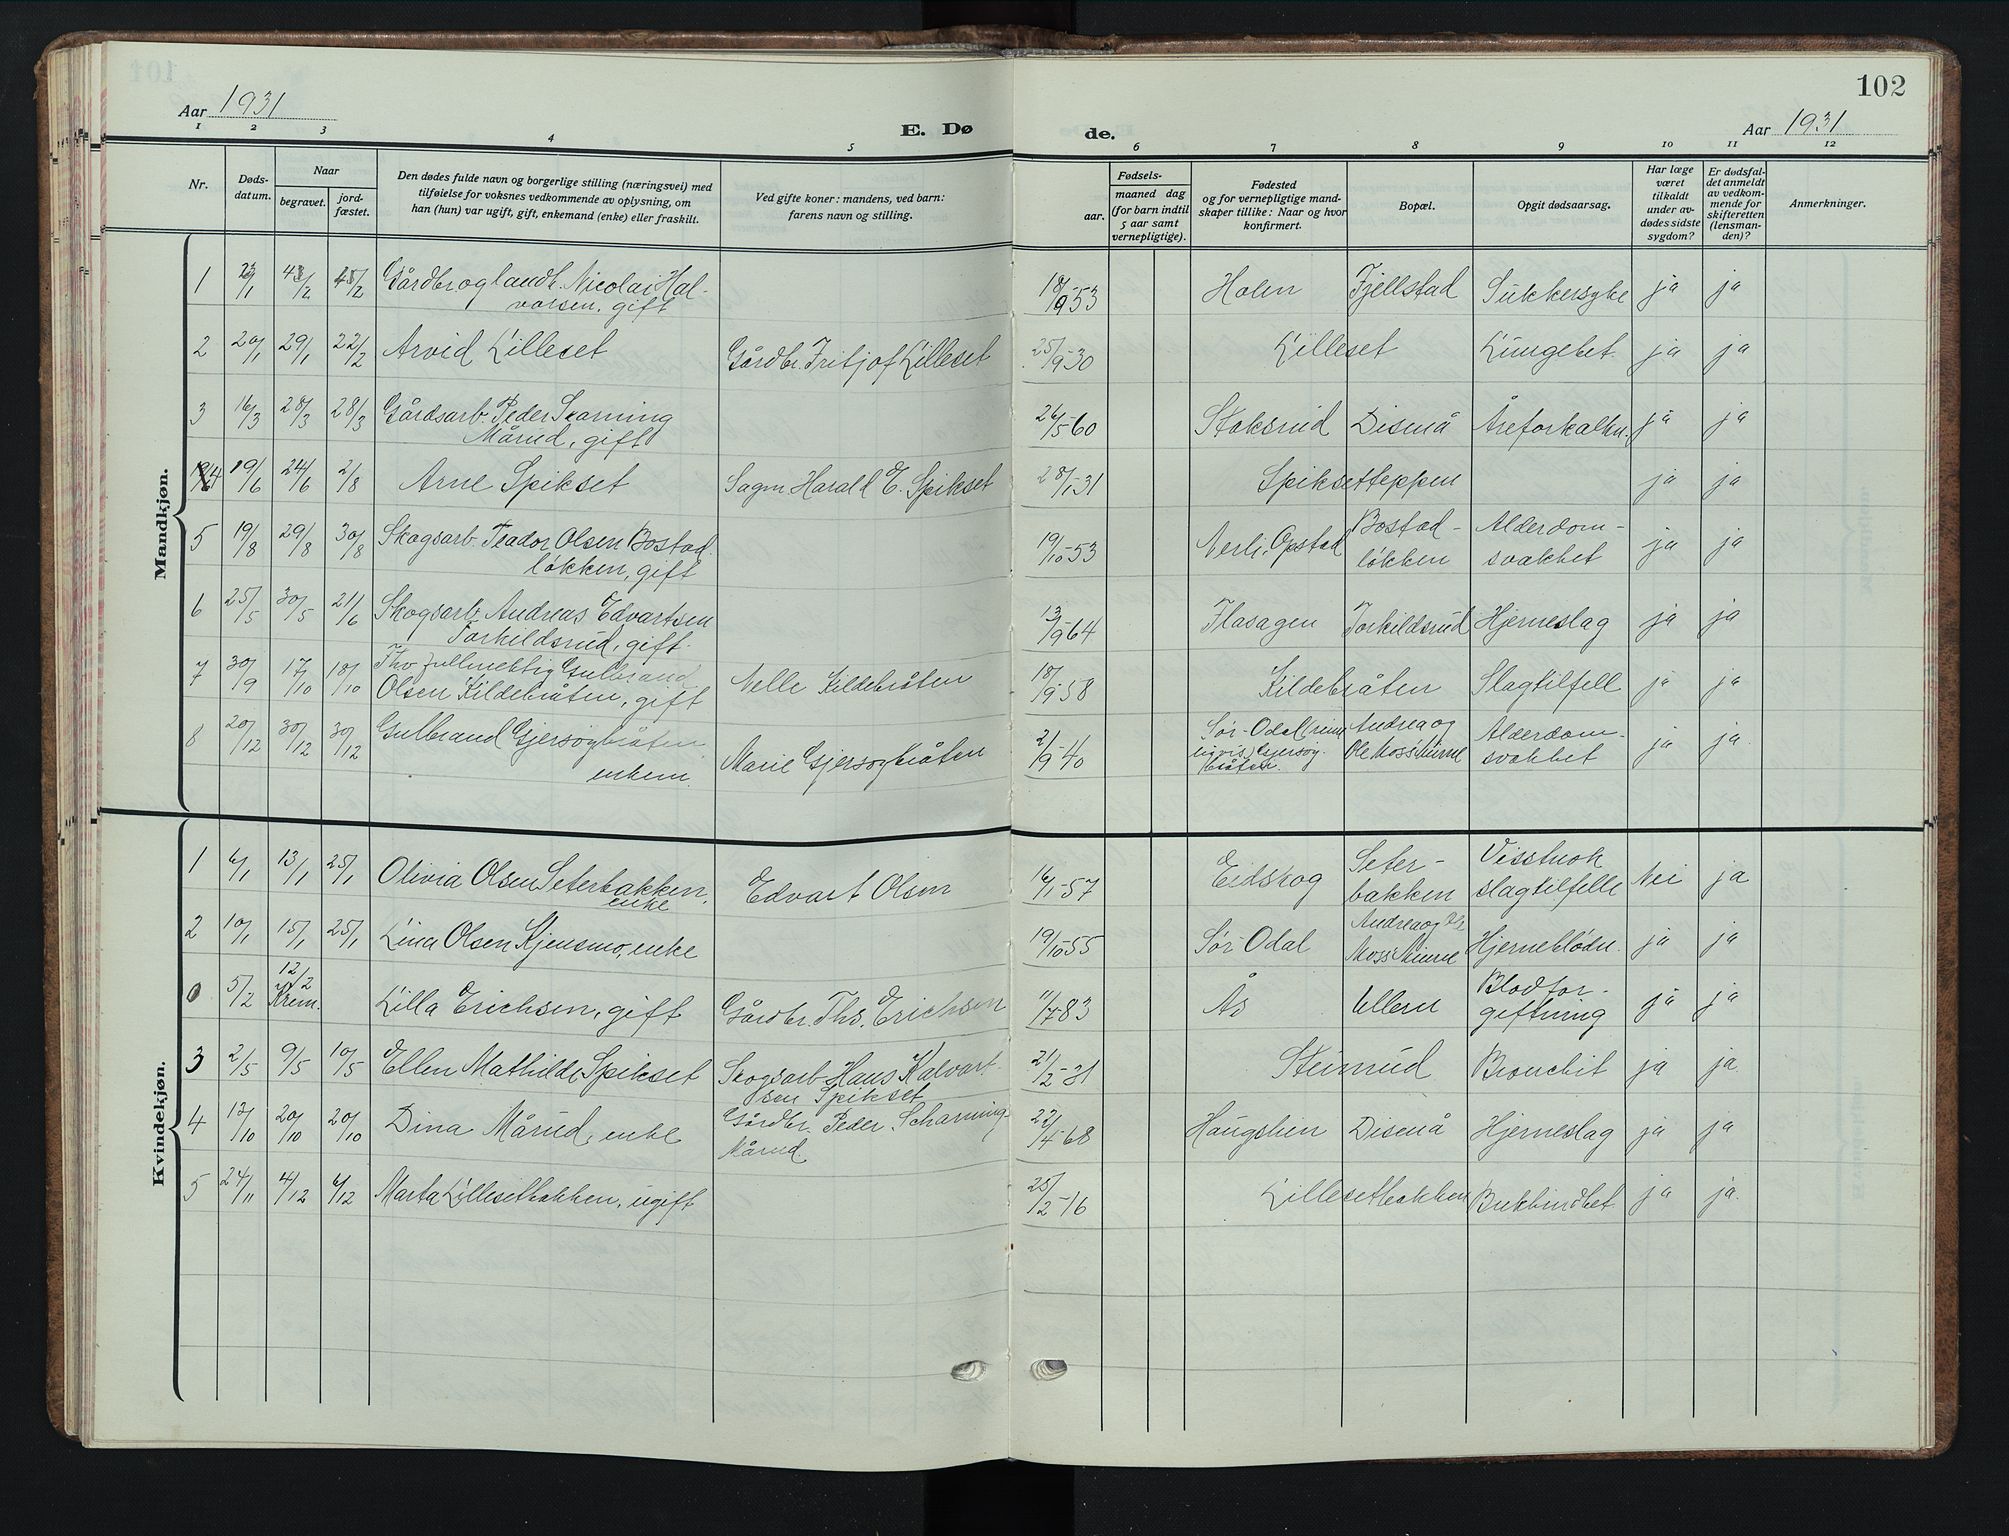 Aar 1931
E. Dø
de.
Aar 1931
102
1 2 3 4 5 6 7 8 9 10 11 12
Nr.
Døds-
datum.
Naar
begravet.
jord-
fæstet.
Den dødes fulde navn og borgerlige stilling (næringsvei) med
tilføielse for voksnes vedkommende av oplysning, om
han (hun) var ugift, gift, enkemand (enke) eller fraskilt.
Ved gifte koner: mandens, ved barn:
farens navn og stilling.
Fødsels-
aar.
maaned dag
(for barn indtil
5 aar samt
vernepligtige).
Fødested
og for vernepligtige mand-
skaper tillike: Naar og hvor
konfirmert.
Bopæl.
Opgit dødsaarsag.
Har læge
været
tilkaldt
under av-
dødes sidste
sygdom?
Er dødsfal-
det anmeldt
av vedkom-
mende for
skifteretten
(lensman-
den)?
Anmerkninger.
Mandkjøn.
1 Gårdbr. og landh. Nicolai Hal-
vorsen, gift 18/9-53 Holen Fjellstad Sukkersyke ja ja
2 20/1 29/1 22/2 Arvid Lilleset Gårdbr. Fritjof Lilleset 25/9-30 Lilleset Lungebet. ja ja
3 16/3 28/3 28/3 Gårdsarb. Peder Skarning
Mårud, gift 26/5-60 Stoksrud Diserud Åreforkalkn. ja ja
4 19/6 24/6 2/8 Arne Spikset Sagm. Harald E. Spikset 28/1-31 Spiksetteppen ja ja
5 19/8 29/8 30/8 Skogsarb. Teador Olsen Bostad-
løkken, gift 19/10-53 Nerli, Opstad Bostad-
løkken Alderdom-
svakhet ja ja
6 25/5 30/5 21/6 Skogsarb. Andreas Edvartsen
Torkildsrud, gift. 13/9-64 Flasagen Torkildsrud Hjerneslag ja ja
7 30/9 17/10 18/10 Thv. fullmektig Gulbrand
Olsen Kildebråten, gift Nelle Kildebråten 18/9-58 Kildebråten Slagtilfell ja ja
8 20/12 30/12 30/12 Gulbrand Gjersøgbråten
enkem. Marie Gjersøgbråten 2/9-40 Sør-Odal (rime-
ligvis) Gjersøg-
bråten. Andrea og
Ole Moss Minne Alderdom-
svakhet ja ja
Kvindekjøn.
1 6/1 13/1 25/1 Olivia Olsen Seterbakken,
enke Edvart Olsen 16/1-57 Eidskog Seter-
bakken Visstnok
slagtilfelle Nei ja
2 10/1 15/1 25/1 Lina Olsen Kjensmo, enke 19/10-55 Sør-Odal Andrea og Ole
Moss Minne Hjerneblødn. ja ja
0 5/2 12/2
Krem. Lilla Erichsen, gift Gårdbr. Ths. Erichsen 11/7-83 Ås Ullern Blodfor-
giftning ja ja
3 2/5 9/5 10/5 Ellen Mathilde Spikset Skogsarb. Hans Kalvart-
sen Spikset 21/2-31 Steinrud Bronchit ja ja.
4 12/10 20/10 20/10 Dina Mårud, enke Gårdbr. Peder Scharning-
Mårud. 22/4-68 Haugslien Diserud Hjerneslag ja ja
5 24/11 4/12 6/12 Marta Lillesetbakken, ugift 25/2-16 Lillesetbakken Bukhindbet. ja ja.